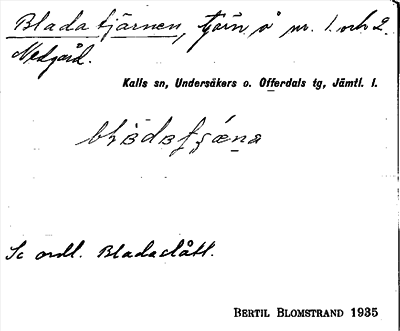 Bladatjärnen, tjärn å nr. 1. och 2.
Nedgård.
Kalls sn, Undersåkers o. Offerdals tg, Jämtl. l.
Se ordl. Bladaslått.
BERTIL BLOMSTRAND 1935